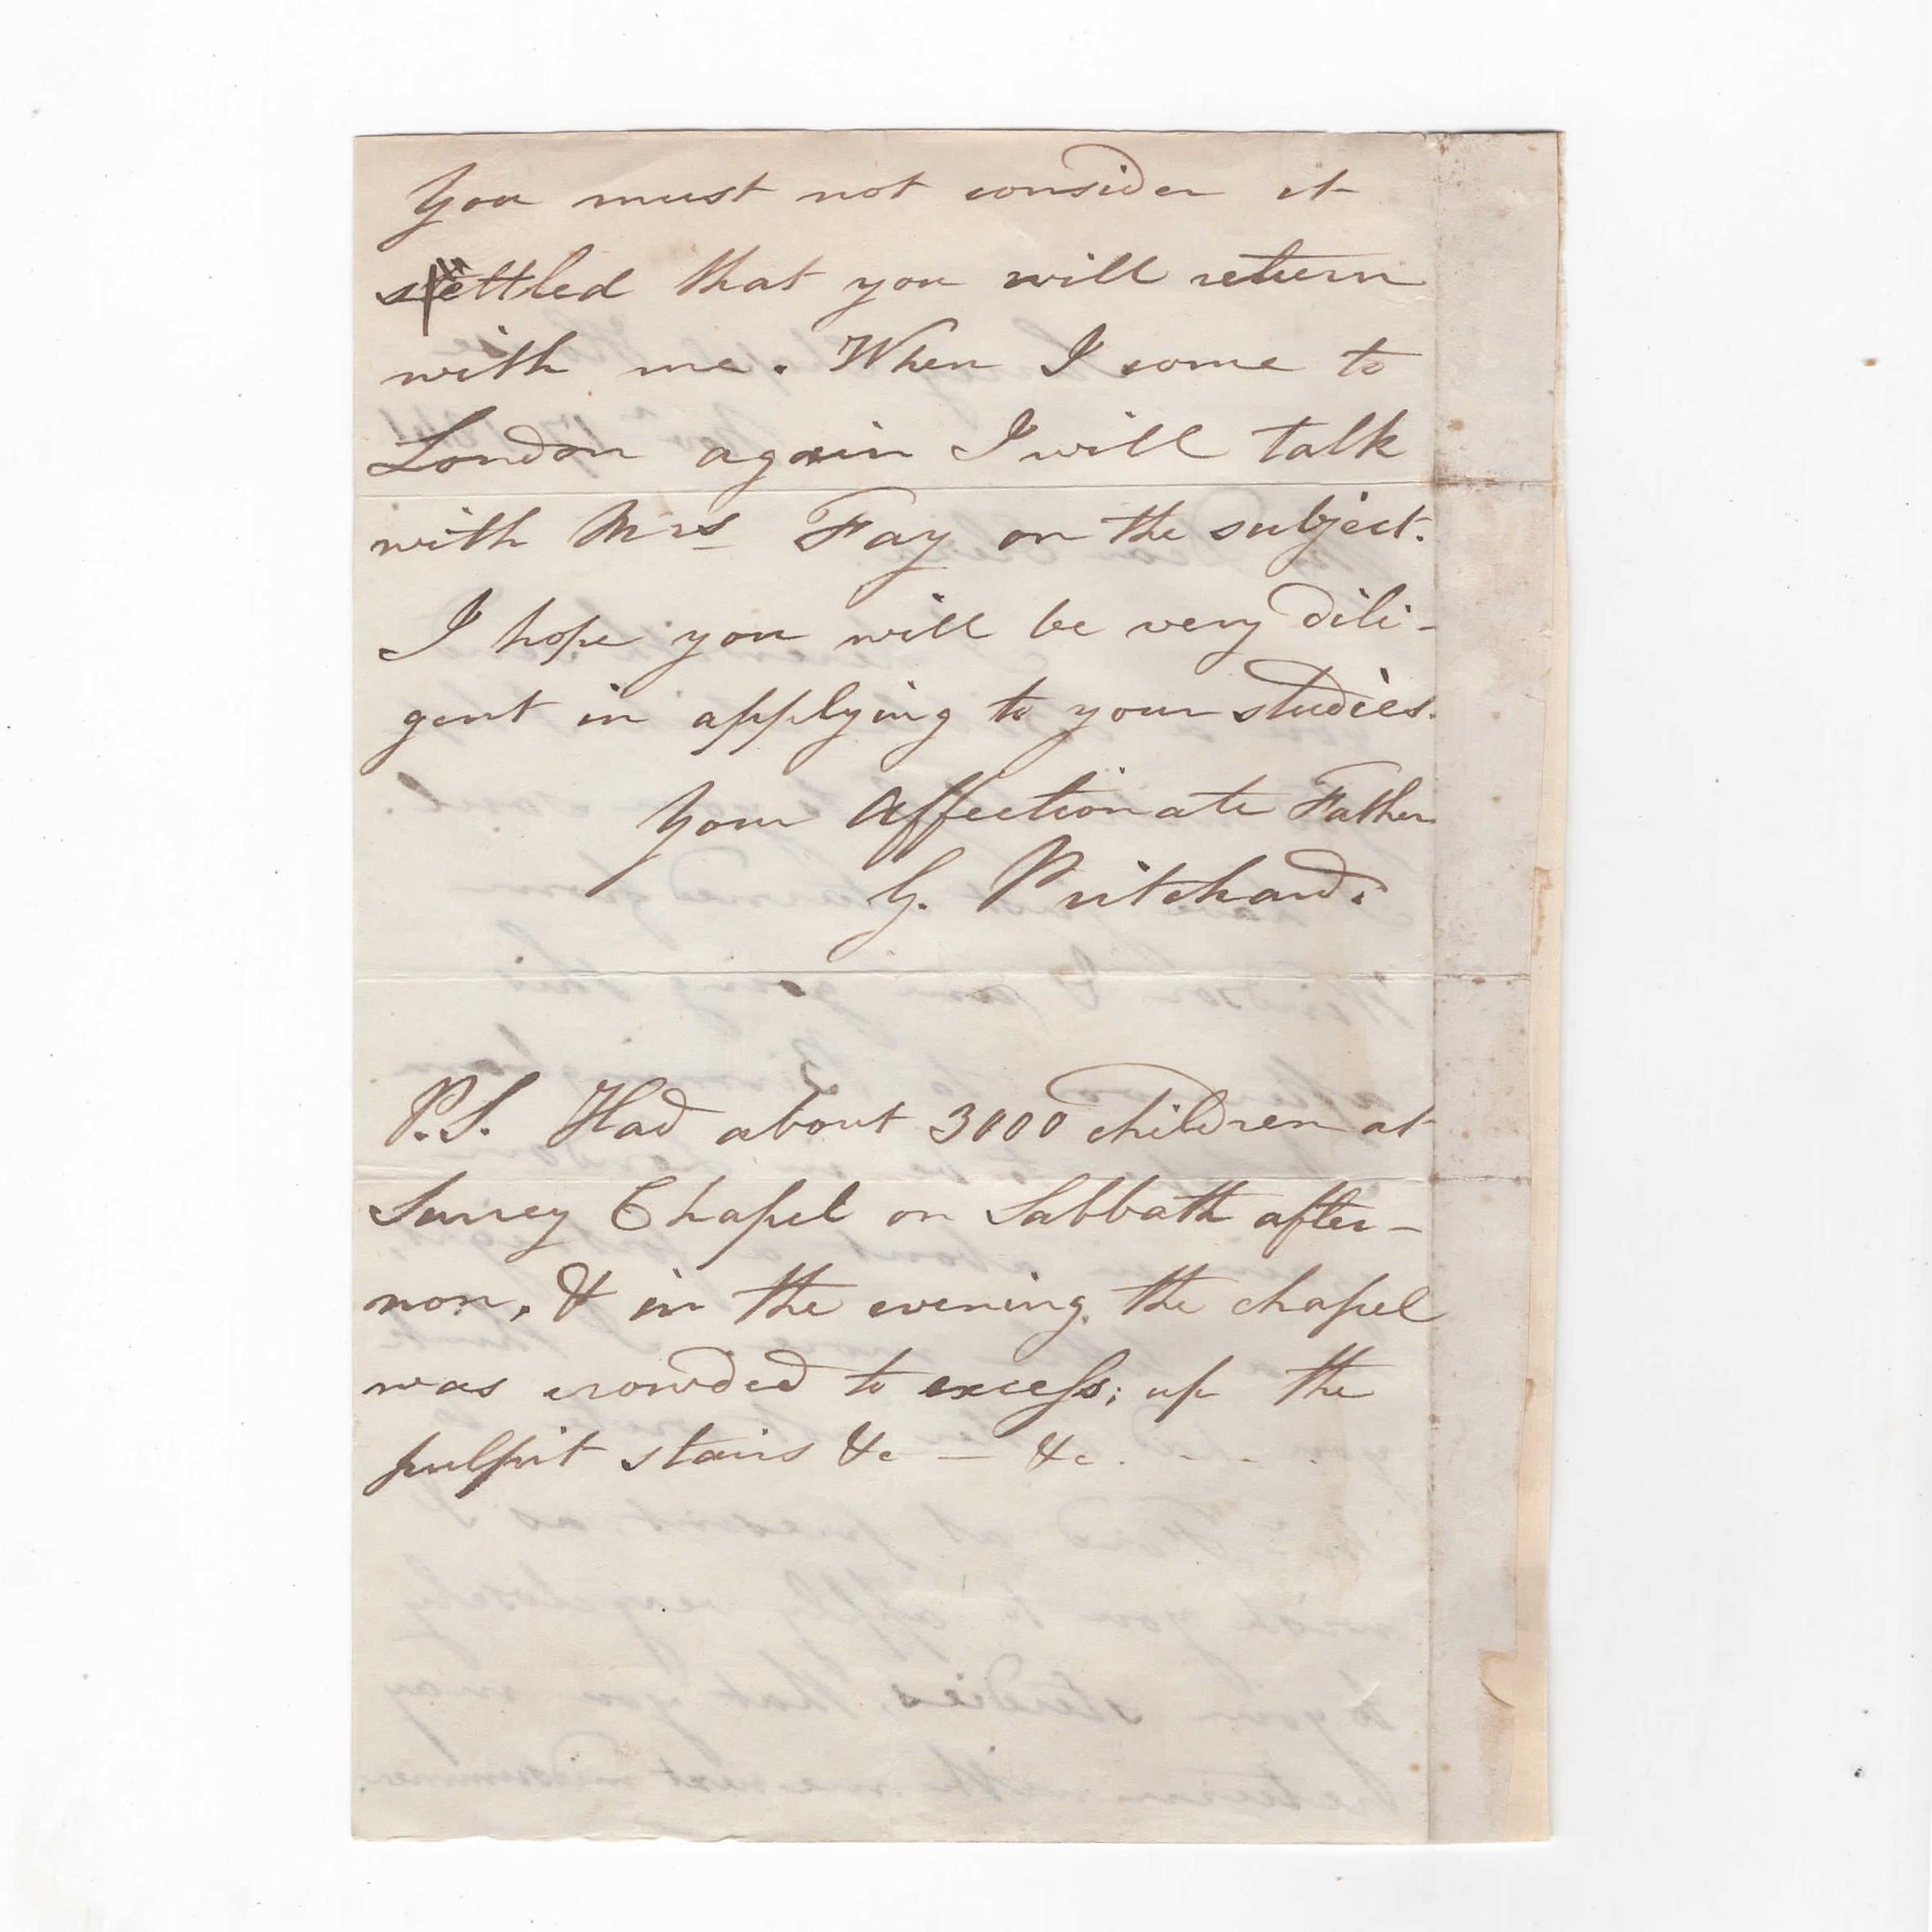 You must not consider it
settled that you will return
with me. When I come to
London again I will talk
with Mrs Fay on the subject.
I hope you will be very dili-
gent in applying to your studies.
Your Affectionate Father
G. Pritchard.
P.S. Had about 3000 children at
Surrey Chapel on Sabbath after-
non, & in the evening the chapel
was crowded to excess; up the
pulpit stairs &c — &c. - - . .